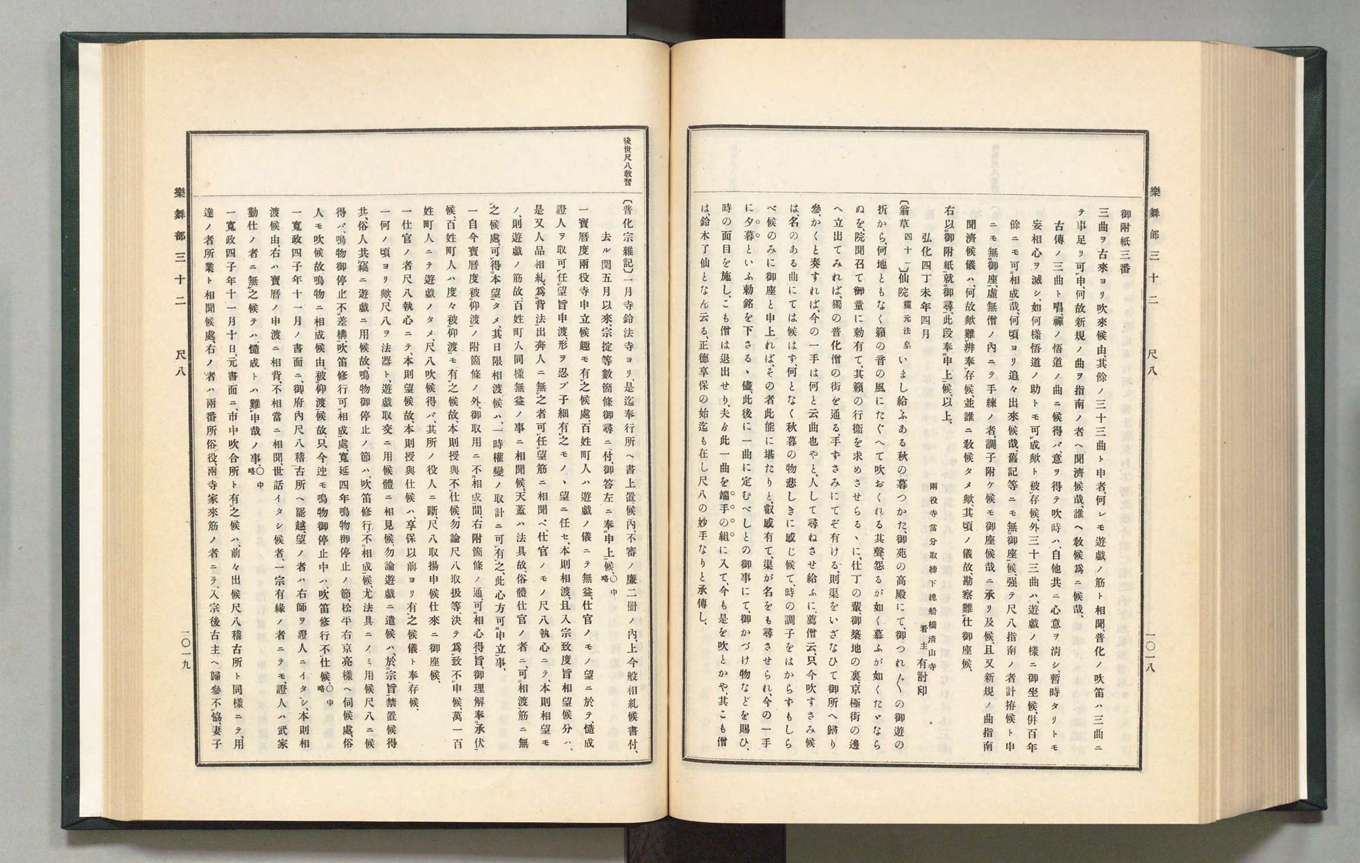 樂舞部三十二 尺八
一〇一八
御附紙三番
三曲ヲ古來ヨリ吹來候由其餘ノ三十三曲ト申者何レモ遊戯ノ筋ト相聞普化ノ吹笛ハ三曲ニ
テ事足リ可申何故新規ノ曲ヲ指南ノ者ヘ聞濟候哉誰ヘ敎候爲ニ候哉、
古傳ノ三曲ト唱禪ノ悟道ノ曲ニ候得バ意ヲ得テ吹時ハ自他共ニ心意ヲ淸シ暫時タリトモ
妄相心ヲ滅シ如何樣悟道ノ助トモ可成歟ト被存候外三十三曲ハ遊戯ノ樣ニ御坐候倂百年
餘ニモ可相成哉何頃ヨリ追々出來候哉舊記等ニモ無御座候强テ尺八指南ノ者計拵候ト申
ニモ無御座虛無僧ノ內ニテ手練ノ者調子附ケ候モ御座候哉ニ承リ及候且又新規ノ曲指南
聞濟候儀ハ何故歟難辨奉存候並誰ニ敎候タメ歟其頃ノ儀故勘察難仕御座候、
右以御附紙就御尋此段奉申上候以上、
弘化四丁未年四月
兩役寺當分取締下總船橋淸山寺
看主 有 印
〔翁草 四十〕仙院 靈元法皇 いまし給ふある秋の暮つかた御苑の高殿にて御つれ〴〵の御遊の
折から何地ともなく籟の音の風にたぐへて吹おくれる其聲怨るが如く慕ふが如くたゞなら
ぬを院聞召て御童に勅有て其籟の行衞を求めさせらるゝに仕丁の輩御築地の裏京極街の邊
へ立出てみれば獨の普化僧の街を通る手すさみにてぞ有ける則渠をいざなひて御所へ歸り
參かくと奏すれば今の一手は何と云曲也やと人して尋ねさせ給ふに薦僧云只今吹すさみ候
は名のある曲にては候はず何となく秋暮の物悲しきに感じ候て時の調子をはからずもしら
べ候のみに御座と申上ればその者此能に堪たりと叡感有て渠が名をも尋させられ今の一手
に夕暮といふ勅銘を下さるゝ儘此後に一曲に定むべしとの御事にて御かづけ物などを賜ひ、
時の面目を施しこも僧は退出せり夫ゟ此一曲を鎰手の組に入て今も是を吹とかや其こも僧
は鈴木了仙となん云る正德享保の始迄も在し尺八の妙手なりと承傳し、
後世尺八敎習
〔普化宗雜記〕一月寺鈴法寺ヨリ是迄奉行所ヘ書上置候內不審ノ廉二冊ノ內上今般相糺候書付、
去ル閏五月以來宗掟等數箇條御尋ニ付御答左ニ奉申上候 〇中略
一寶曆度兩役寺申立候趣モ有之候處百姓町人ハ遊戯ノ儀ニテ無益仕官ノモノ望ニ於テ慥成
證人ヲ取可任望旨申渡形ヲ忍ブ子細有之モノヽ望ニ任セ本則相渡且入宗致度旨相望候分ハ、
是又人品相糺爲背法出奔人ニ無之者可任望筋ニ相聞ヘ仕官ノモノ尺八執心ニテ本則相望モ
ノ則遊戯ノ筋故百姓町人同樣無益ノ事ニ相聞候天蓋ハ法具故俗體仕官ノ者ニ可相渡筋ニ無
之候處可得本望タメ其日限相渡候ハ一時權變ノ取計ニ可有之此心方可申立事、
一自今寶曆度被仰渡ノ附箇條ノ外御取用ニ不相成間右附箇條ノ通可相心得旨御理解奉承伏
候百姓町人ハ度々被仰渡モ有之候故本則授與不仕候勿論尺八取扱等決テ爲致不申候萬一百
姓町人ニテ遊戯ノタメ尺八吹候得バ其所ノ役人ニ斷尺八取揚申候仕來ニ御座候、
一仕官ノ者尺八執心ニテ本則望候故本則授與仕候ハ享保以前ヨリ有之候儀ト奉存候、
一何ノ頃ヨリ歟尺八ヲ法器ト遊戯取交ニ用候體ニ相見候勿論遊戯ニ遣候ハ於宗旨禁置候得
共俗人共稿ニ遊戯ニ用候故鳴物御停止ノ節ハ吹笛修行不相成候尤法具ニノミ用候尺八ニ候
得バ鳴物御停止不差構吹笛修行可相成處寬延四年鳴物御停止ノ節松平右京亮樣ヘ伺候處俗
人モ吹候故鳴物ニ相成候由被仰渡候故只今迚モ鳴物御停止中ハ吹笛修行不仕候 〇中略
一寬政四子年十一月ノ書面ニ御府內尺八稽古所ヘ罷越望ノ者ハ右師ヲ證人ニイタシ本則相
渡候由右ハ寶曆ノ申渡ニ相背不相當ニ相聞世話イタシ候者一宗有緣ノ者ニテモ證人ハ武家
勤仕ノ者ニ無之候テハ慥成トハ難申哉ノ事 〇中略
一寬政四子年十一月十日元書面ニ市中吹合所ト有之候ハ前々出候尺八稽古所ト同樣ニテ用
達ノ者所業ト相聞候處右ノ者ハ兩番所俗役兩寺家來筋ノ者ニテ入宗後古主ヘ歸參不恊妻子
樂舞部三十二 尺八
一〇一九